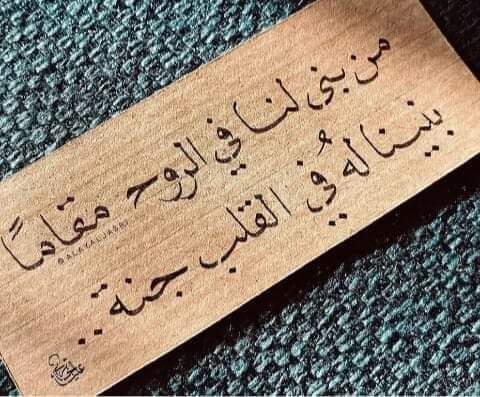 من بنى لنا في الروح مقامًا
بنينا له في القلب جنة..